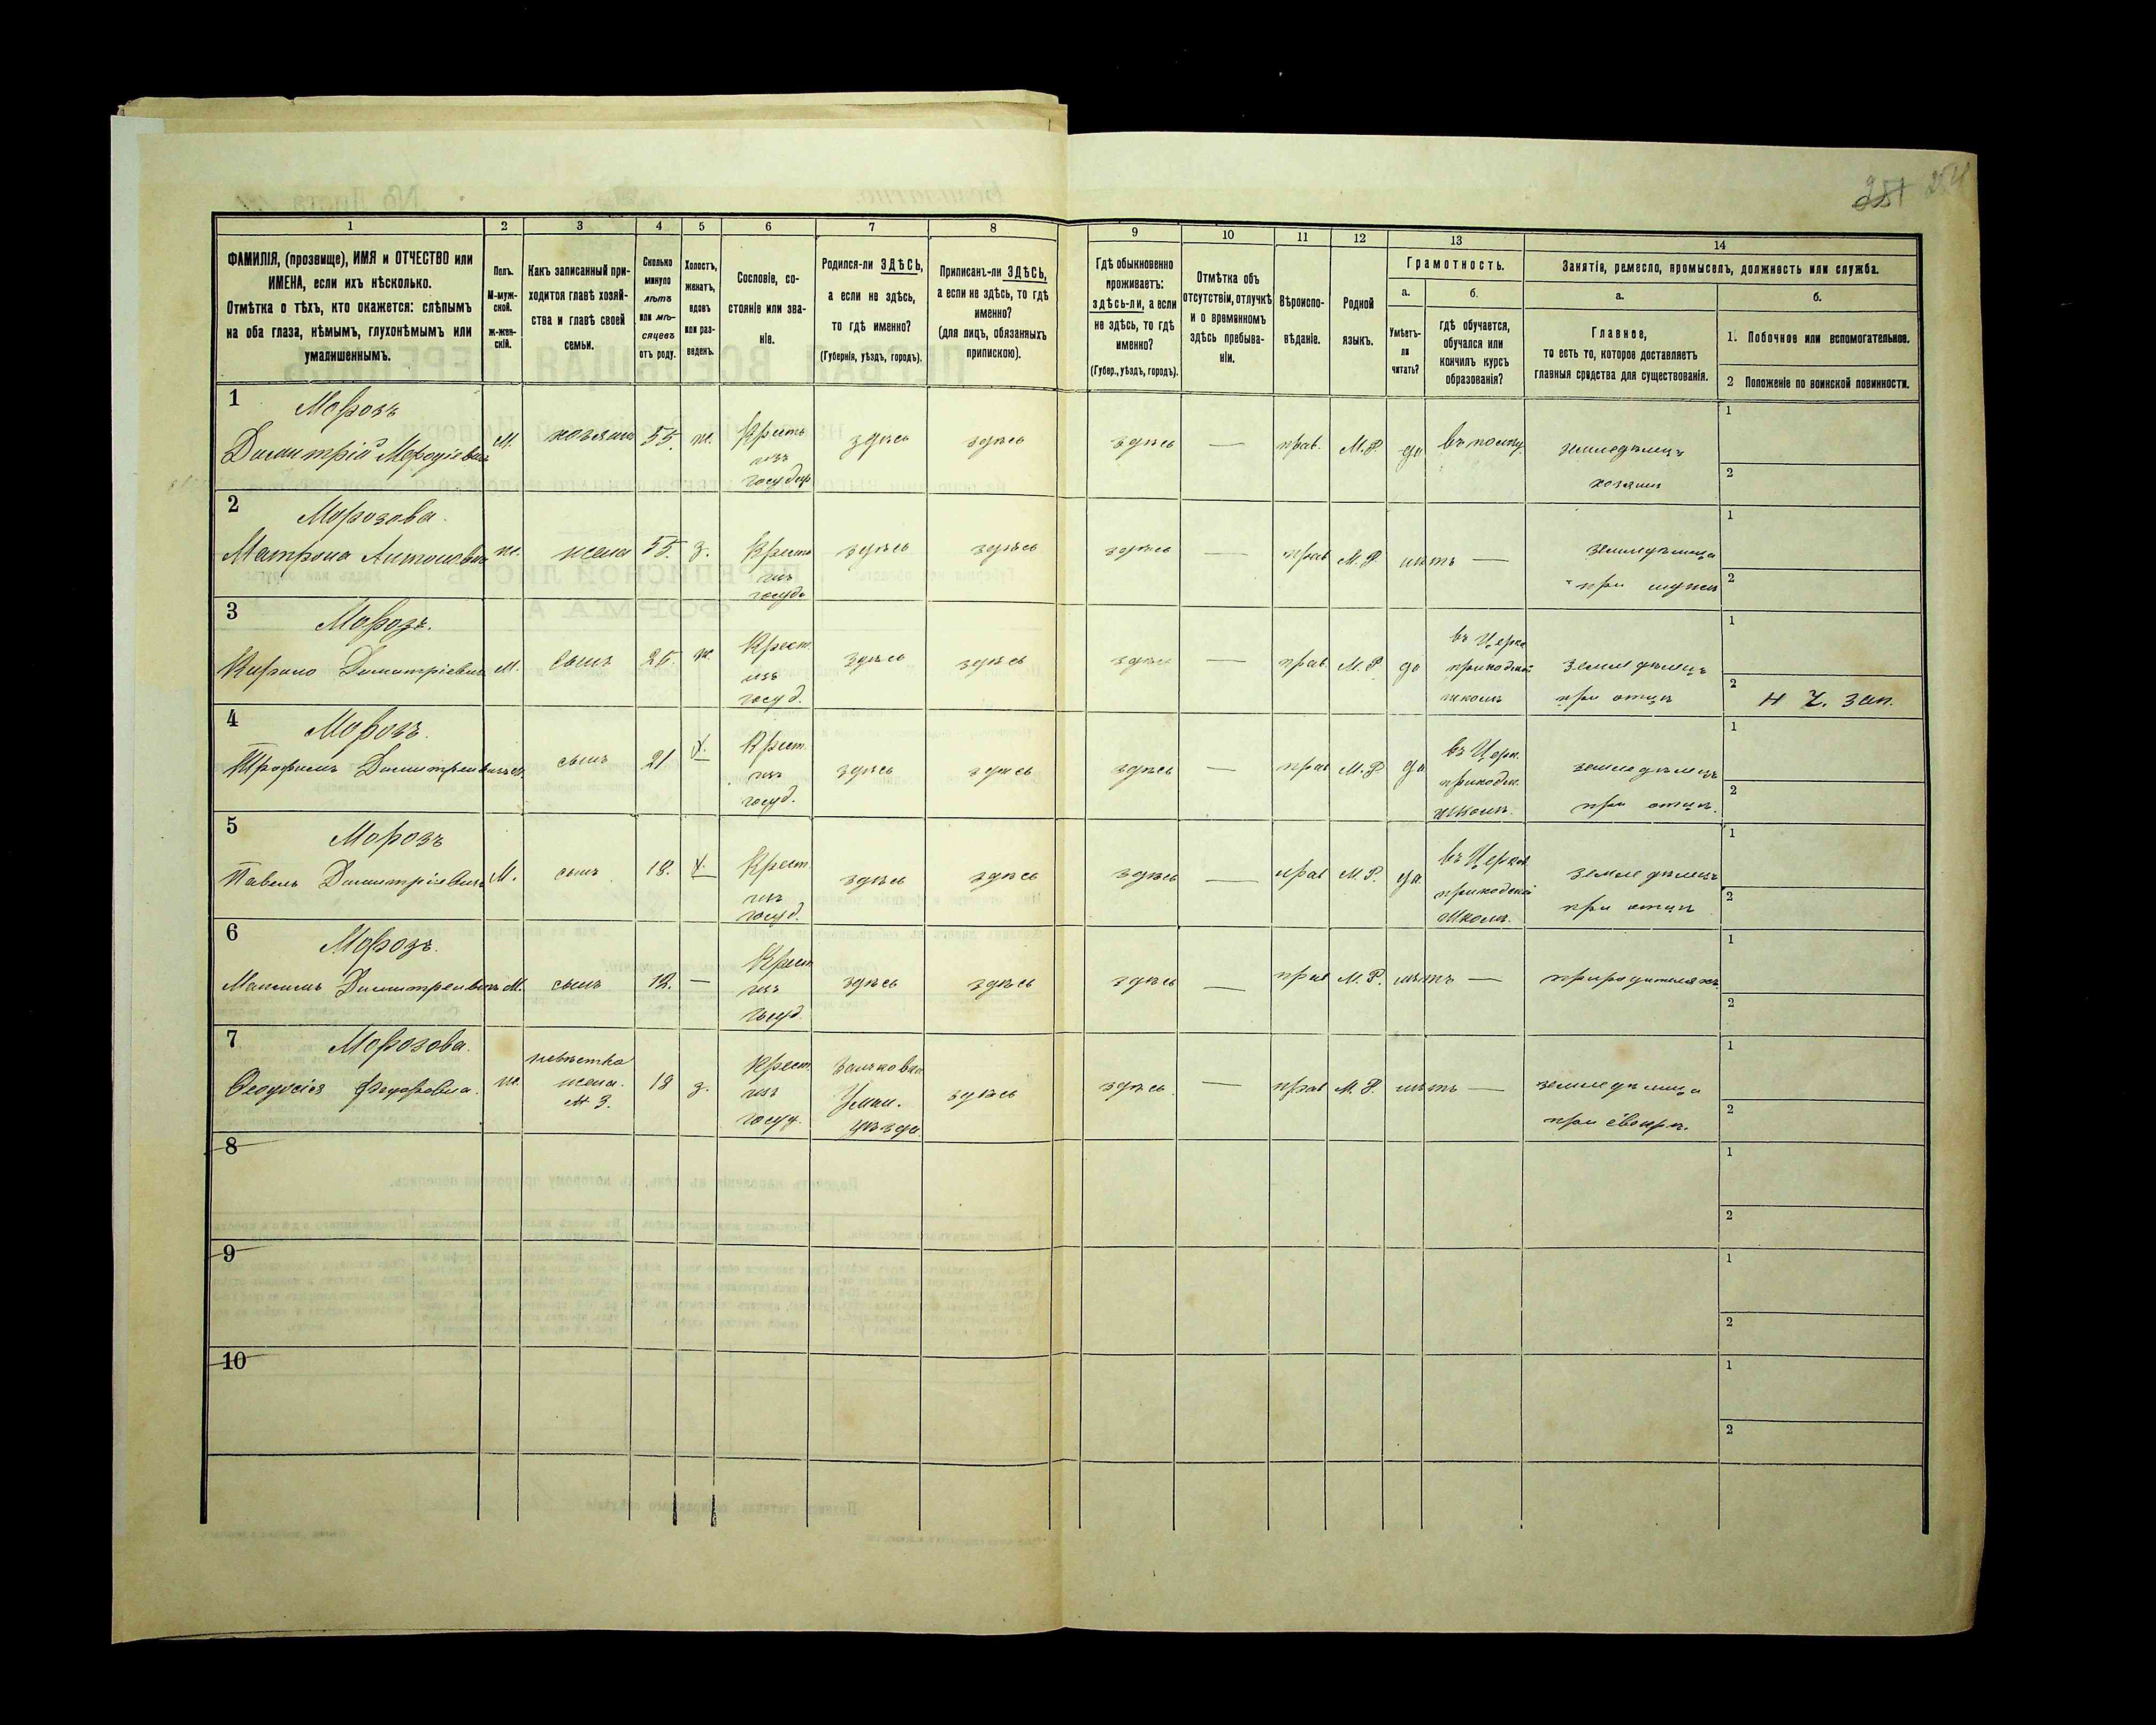 251 254
1 2 3 4 5 6 7 8 9 10 11 12 13 14
ФАМИЛІЯ, (прозвище), ИМЯ и ОТЧЕСТВО или
ИМЕНА, если ихъ нѣсколько.
Отмѣтка о тѣхъ, кто окажется: слѣпымъ
на оба глаза, нѣмымъ, глухонѣмымъ или
умалишеннымъ.
Полъ.
М-муж-
ской.
ж-жен-
скій.
Какъ записанный при-
ходится главѣ хозяй-
ства и главѣ своей
семьи.
Сколько
минуло
лѣтъ
или мѣ-
сяцевъ
отъ роду.
Холостъ,
женатъ,
вдовъ
или раз-
веденъ.
Сословіе, со-
стояніе или зва-
ніе.
Родился-ли ЗДѢСЬ,
а если не здѣсь,
то гдѣ именно?
(Губернія, уѣздъ, городъ).
Приписанъ-ли ЗДѢСЬ,
а если не здѣсь, то гдѣ
именно?
(для лицъ, обязанныхъ
припискою).
Гдѣ обыкновенно
проживаетъ:
здѣсь-ли, а если
не здѣсь, то гдѣ
именно?
(Губер., уѣздъ, городъ).
Отмѣтка объ
отсутствіи, отлучкѣ
и о временномъ
здѣсь пребыва-
ніи.
Вѣроиспо-
вѣданіе.
Родной
языкъ.
Грамотность.
а.
Умѣетъ-
ли
читать?
б.
гдѣ обучается,
обучался или
кончилъ курсъ
образованія?
Занятіе, ремесло, промыселъ, должность или служба.
а.
Главное,
то есть то, которое доставляетъ
главныя средства для существованія.
б.
1. Побочное или вспомогательное.
2 Положеніе по воинской повинности.
1
Морозъ
Димитрій
М. хозяинъ 55. ж. Крестъ здѣсь здѣсь здѣсь — прав. М.Р. да въ полку земледѣлецъ 1
изъ
государ хозяинъ 2
2
Морозова.
Матрона Антоновна ж. жена 55. з. Крестъ здѣсь здѣсь здѣсь — прав М.Р. нѣтъ — земледѣлица 1
изъ при мужѣ 2
госуд.
3
Морозъ.
Кирило Димитріевичъ М. сынъ 25. ж. Крест. здѣсь здѣсь здѣсь — прав М.Р. да въ Церко земледѣлецъ 1
изъ приходской при отцѣ 2
госуд. школѣ Н Ч. зап.
4
Морозъ.
Трофимъ Димитреевичъ М. сынъ 21 х. Крест. здѣсь здѣсь здѣсь — прав М.Р. да въ Церк. земледѣлецъ 1
изъ приходск. при отцѣ. 2
госуд. школѣ.
5
Морозъ
Павелъ Димитріевичъ М. сынъ 18. х. Крест. здѣсь здѣсь здѣсь — прав М.Р. да въ Церков. земледѣлецъ 1
изъ приходской при отцѣ 2
госуд. школѣ.
6
Морозъ.
Максимъ Димитреевичъ М. сынъ 12. — Крест здѣсь здѣсь здѣсь — прав М.Р. нѣтъ — при родителяхъ. 1
изъ 2
госуд.
7
Морозова.
Ѳеодосія Федоровна. ж. невѣстка 18 з. Крест. здѣсь здѣсь — прав М.Р. нѣтъ — земледѣлица 1
жена. изъ Уман. при свекрѣ. 2
№ 3. госуд. уѣзда.
8 1
2
9 1
2
10 1
2